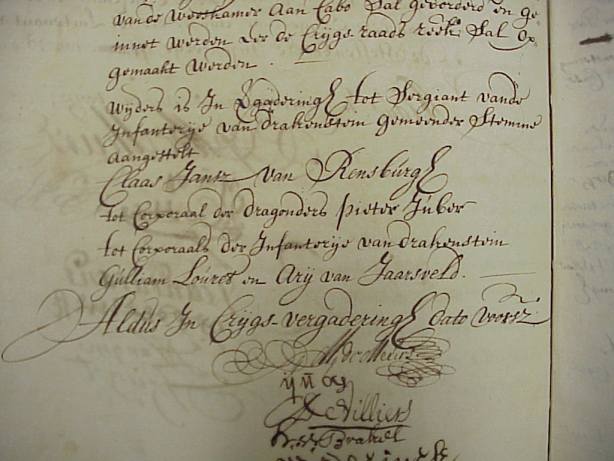 van de Weeskamer Aan Cabo Sal gevordert en ge-
innet werden Eer de Crijgs-raads reek: Sal op
gemaakt werden.
Wijders is In Vergaderingh tot Sergiant vande
Infanterije van drakenstein gemeender Stemme
Aangestelt
Claas Jansz van Rensburgh
tot Corporaal der dragonders pieter Júber
tot Corporaals der Infanterije van drakenstein
Gúlliam Louret en Arij van Jaarsveld.
Aldus In Crijgs-vergaderingh dato voorsz
de Villiers
v: Brakel